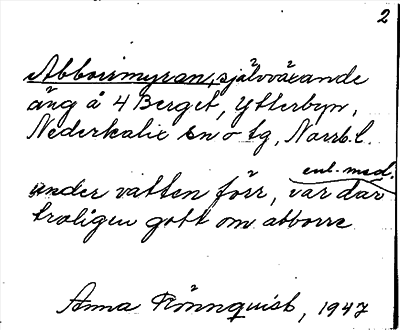 2
Abborrmyran, självväxande
äng å 4 Berget, Ytterbyn,
Nederkalix sn o tg, Norrb.l.
enl. med.
under vatten förr, var där
troligen gott om abborre
Anna Rönnquist, 1947